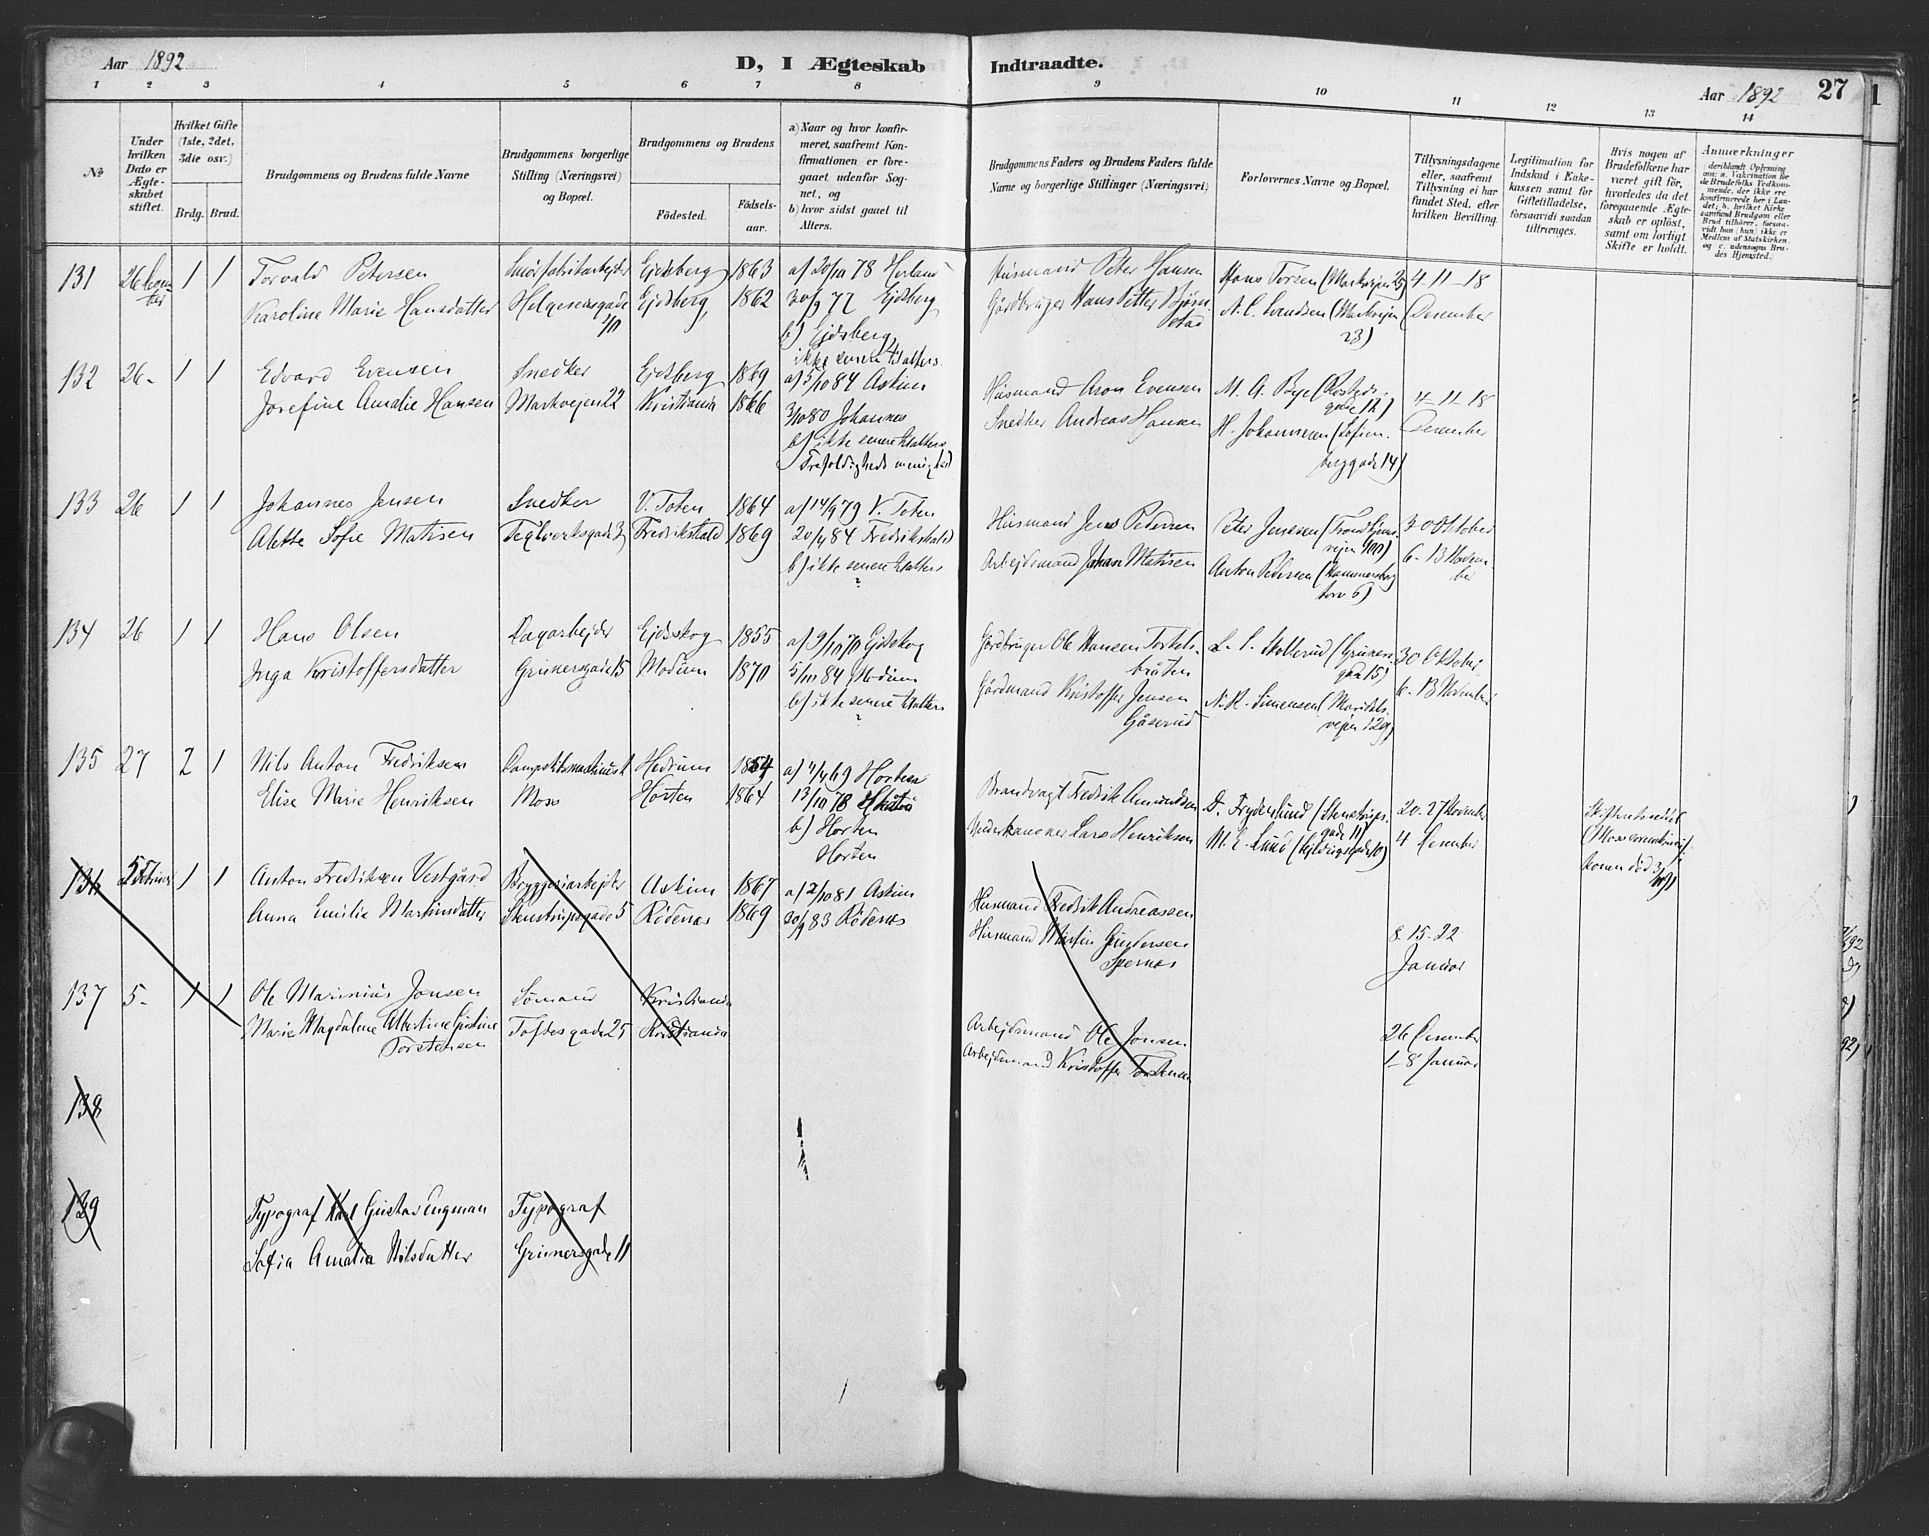 Aar 1892
D, I Ægteskab Indtraadte.
Aar 1892 27
1 2 3 4 5 6 7 8 9 10 11 12 13 14
№
Under hvilken Dato er Ægteskabet stiftet.
Hvilket Gifte (1ste, 2det, 3die osv.)
Brdg. Brud.
Brudgommens og Brudens fulde Navne
Brudgommens borgerlige Stilling (Næringsvei) og Bopæl.
Brudgommens og Brudens
Fødested. Fødselsaar.
a) Naar og hvor konfirmeret, saafremt Konfirmationen er foregaaet udenfor Sognet, og
b) hvor sidst gaaet til Alters.
Brudgommens Faders og Brudens Faders fulde Navne og borgerlige Stillinger (Næringsvei)
Forlovernes Navne og Bopæl.
Tillysningsdagene eller, saafremt Tillysning ei har fundet Sted, efter hvilken Bevilling.
Legitimation for Indskud i Enkekassen samt for Giftetilladelse, forsaavidt saadan tiltrænges.
Hvis nogen af Brudefolkene har været gift før, hvorledes da det foregaaende Ægteskab er opløst, samt om lovligt Skifte er holdt.
Anmærkninger
deriblandt Oplysning om: a. Vakcination for de Brudefolks Vedkommende, der ikke ere konfirmerede her i Landet; b. hvilket Kirkesamfund Brudgom eller Brud tilhører, forsaavidt han (hun) ikke er Medlem af Statskirken, og c. udensogns Brudes Hjemsted.
131 26 1 1 Torvald Petersen Ejdsberg 1863 a) 20/10 78 Husmand Peter Hansen Hans Torsen (Markvejen 25) 4-11-18
Karoline Marie Hansdatter Helgesensgade Ejdsberg 1862 30/9 77 Ejdsberg Gårdbruger Hans Petter (Markvejen 23) December
b) Ejdsberg
ikke senere til alters.
132 26- 1 1 Edvard Evensen Snedker Ejdsberg 1869 a) 5/10 84 Askim Husmand Aron Evensen M. A. Bye 4-11-18
Josefine Amalie Hansen Markvejen 22 Kristiania 1866 3/10 80 Johannes Snedker Andreas Hansen H. Johannesen (Sofienberggade 14) December
b) ikke senere til alters
Trefoldigheds menighed
133 26 1 1 Johannes Jensen Snedker V. Toten 1864 a) 14/9 79 V. Toten Husmand Jens Pedersen Peter Jenssen (Trondhjemsvejen 100) 30 Oktober
Alette Sofie Matisen Teglverksgade 3 Fredrikshald 1869 20/4 84 Fredrikshald Arbejdsmand Johan Matisen Anton Pedersen (Hammersborg torv 6) 6-13 November
b) ikke senere til alters
134 26 1 1 Hans Olsen Dagarbejder Ejdskog 1855 a) 9/10 70 Ejdskog Gårdbruger Ole Hansen Torkelsbråten L. S. Skollerud (Grünersgade 15) 30 Oktober
Inga Kristoffersdatter Grünersgade 15 Modum 1870 5/10 84 Modum Gårdmand Kristoffer Jensen Gåserud N. H. Simensen (Maridalsvejen 129) 6-13 November
b) ikke senere til alters
135 27 2 1 Nils Anton Fredriksen Hedrum 1854 a) 4/4 69 Horten Brandvagt Fredrik Amundsen D. Frydenlund (Stenstrupsgade 11) 20-27 November
Elise Marie Henriksen Moss Horten 1864 13/10 78 Underkanoner Lars Henriksen M. E. Lund 4 December
b) Horten
Horten
konen død
136 5 1 1 Anton Fredriksen Vestgård Bryggeriarbejder Askim 1867 a) 2/10 81 Askim Husmand Fredrik Andreassen 8-15-22
Anna Emilie Martinsdatter Stenstrupsgade 5 Rødenæs 1869 30/9 83 Rødenæs Husmand Martin Gundersen Januar
137 5- 1 1 Ole Marinius Jonsen Sømand Kristiania Arbejdsmand Ole Jonsen 26 December
Marie Magdalene Albertine Torstensen Toftesgade 25 Kristiania Arbejdsmand Kristoffer Torstensen 1-8 Januar
138
139 Typograf Karl Gustav Engman Typograf
Sofia Amalia Nilsdatter Grünersgade 11